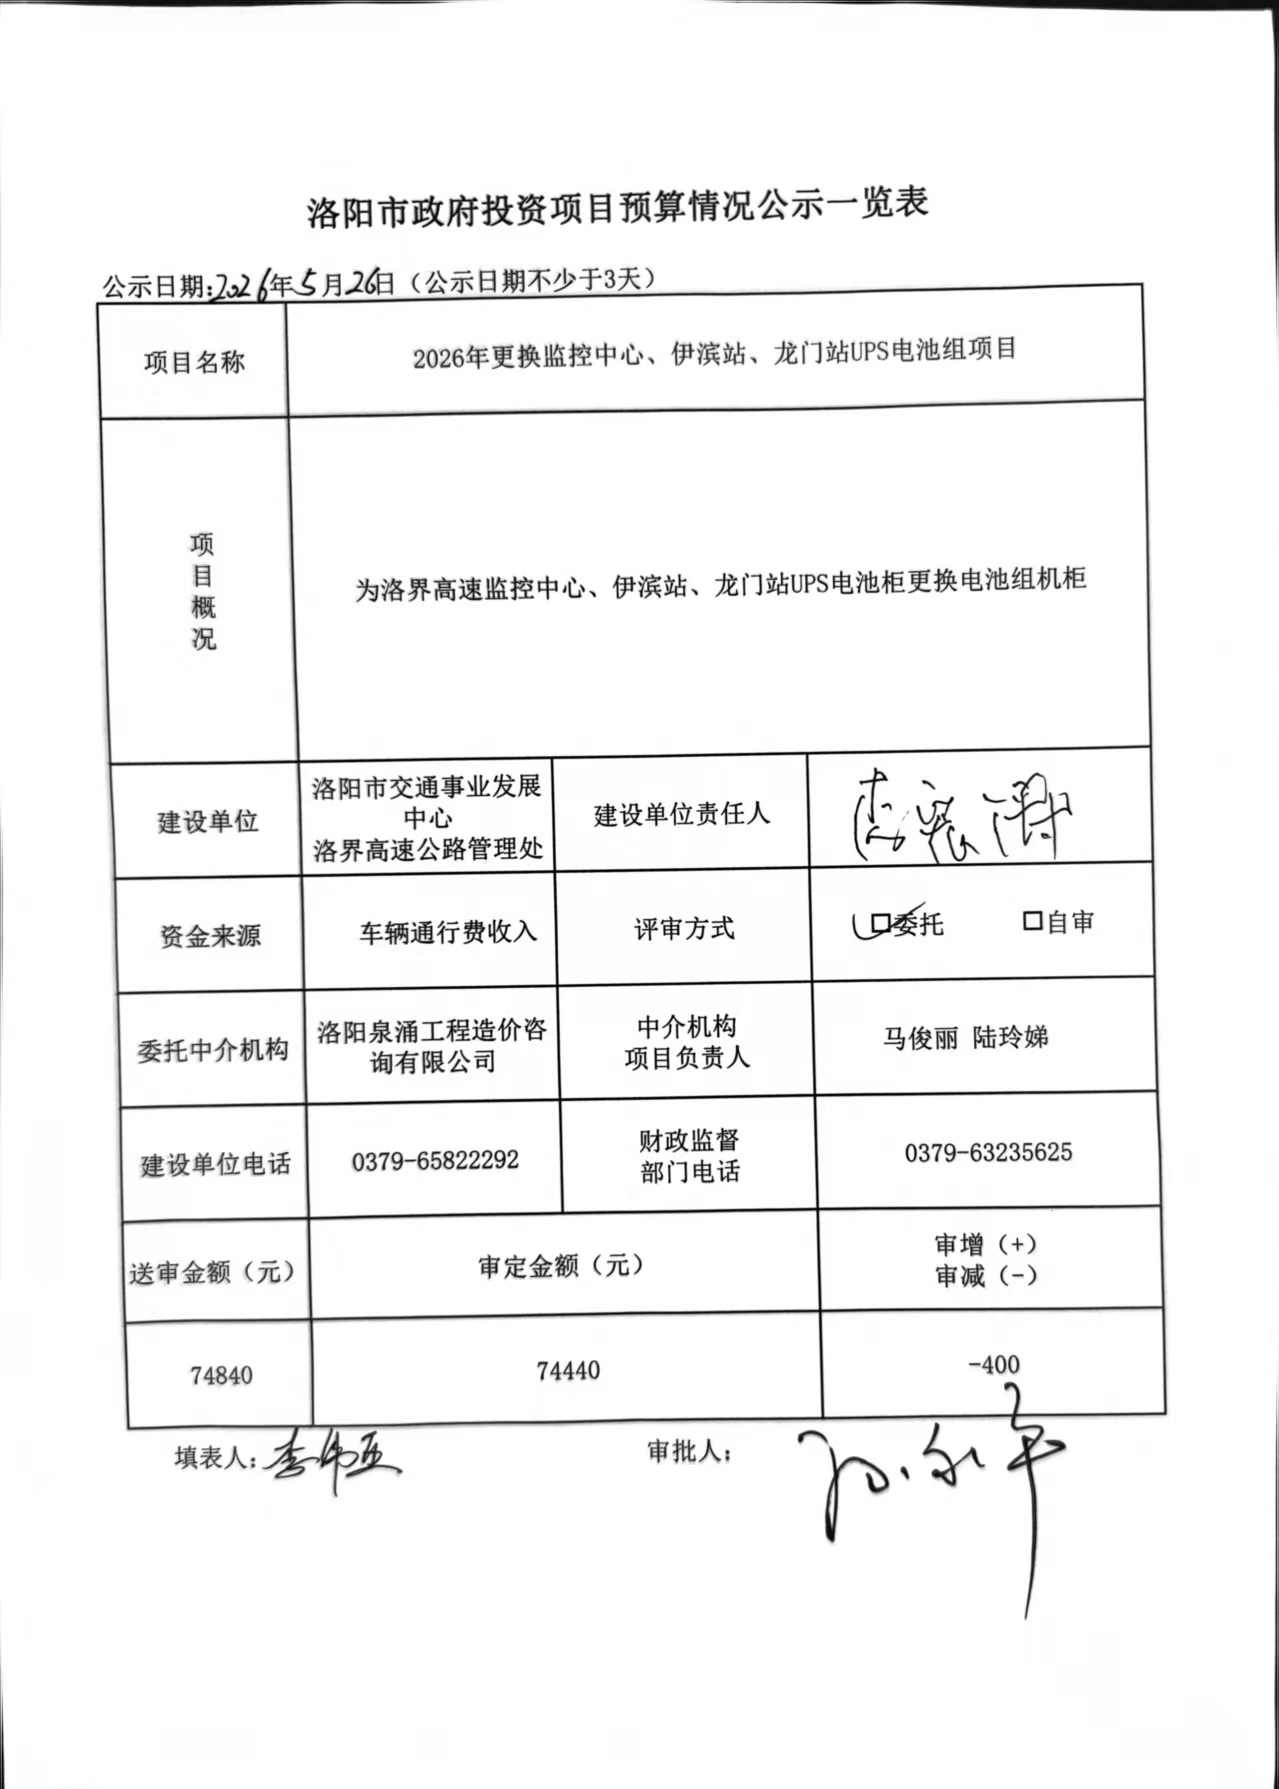 洛阳市政府投资项目预算情况公示一览表
公示日期:2026年5月26日（公示日期不少于3天）
项目名称
2026年更换监控中心、伊滨站、龙门站UPS电池组项目
项
目
概
况
为洛界高速监控中心、伊滨站、龙门站UPS电池柜更换电池组机柜
建设单位
洛阳市交通事业发展
中心
洛界高速公路管理处
建设单位责任人
资金来源
车辆通行费收入
评审方式
☑委托 □自审
委托中介机构
洛阳泉涌工程造价咨
询有限公司
中介机构
项目负责人
马俊丽 陆玲娣
建设单位电话
0379-65822292
财政监督
部门电话
0379-63235625
送审金额（元）
审定金额（元）
审增（+）
审减（-）
74840
74440
-400
填表人:
审批人: